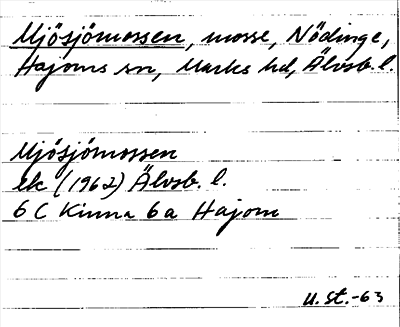 Mjösjömossen, mosse, Nödinge,
Hajoms sn, Marks hd, Älvsb. l.
Mjösjömossen
ek (1962) Älvsb. l.
6 C Kinna 6 a Hajom
U. St. -63